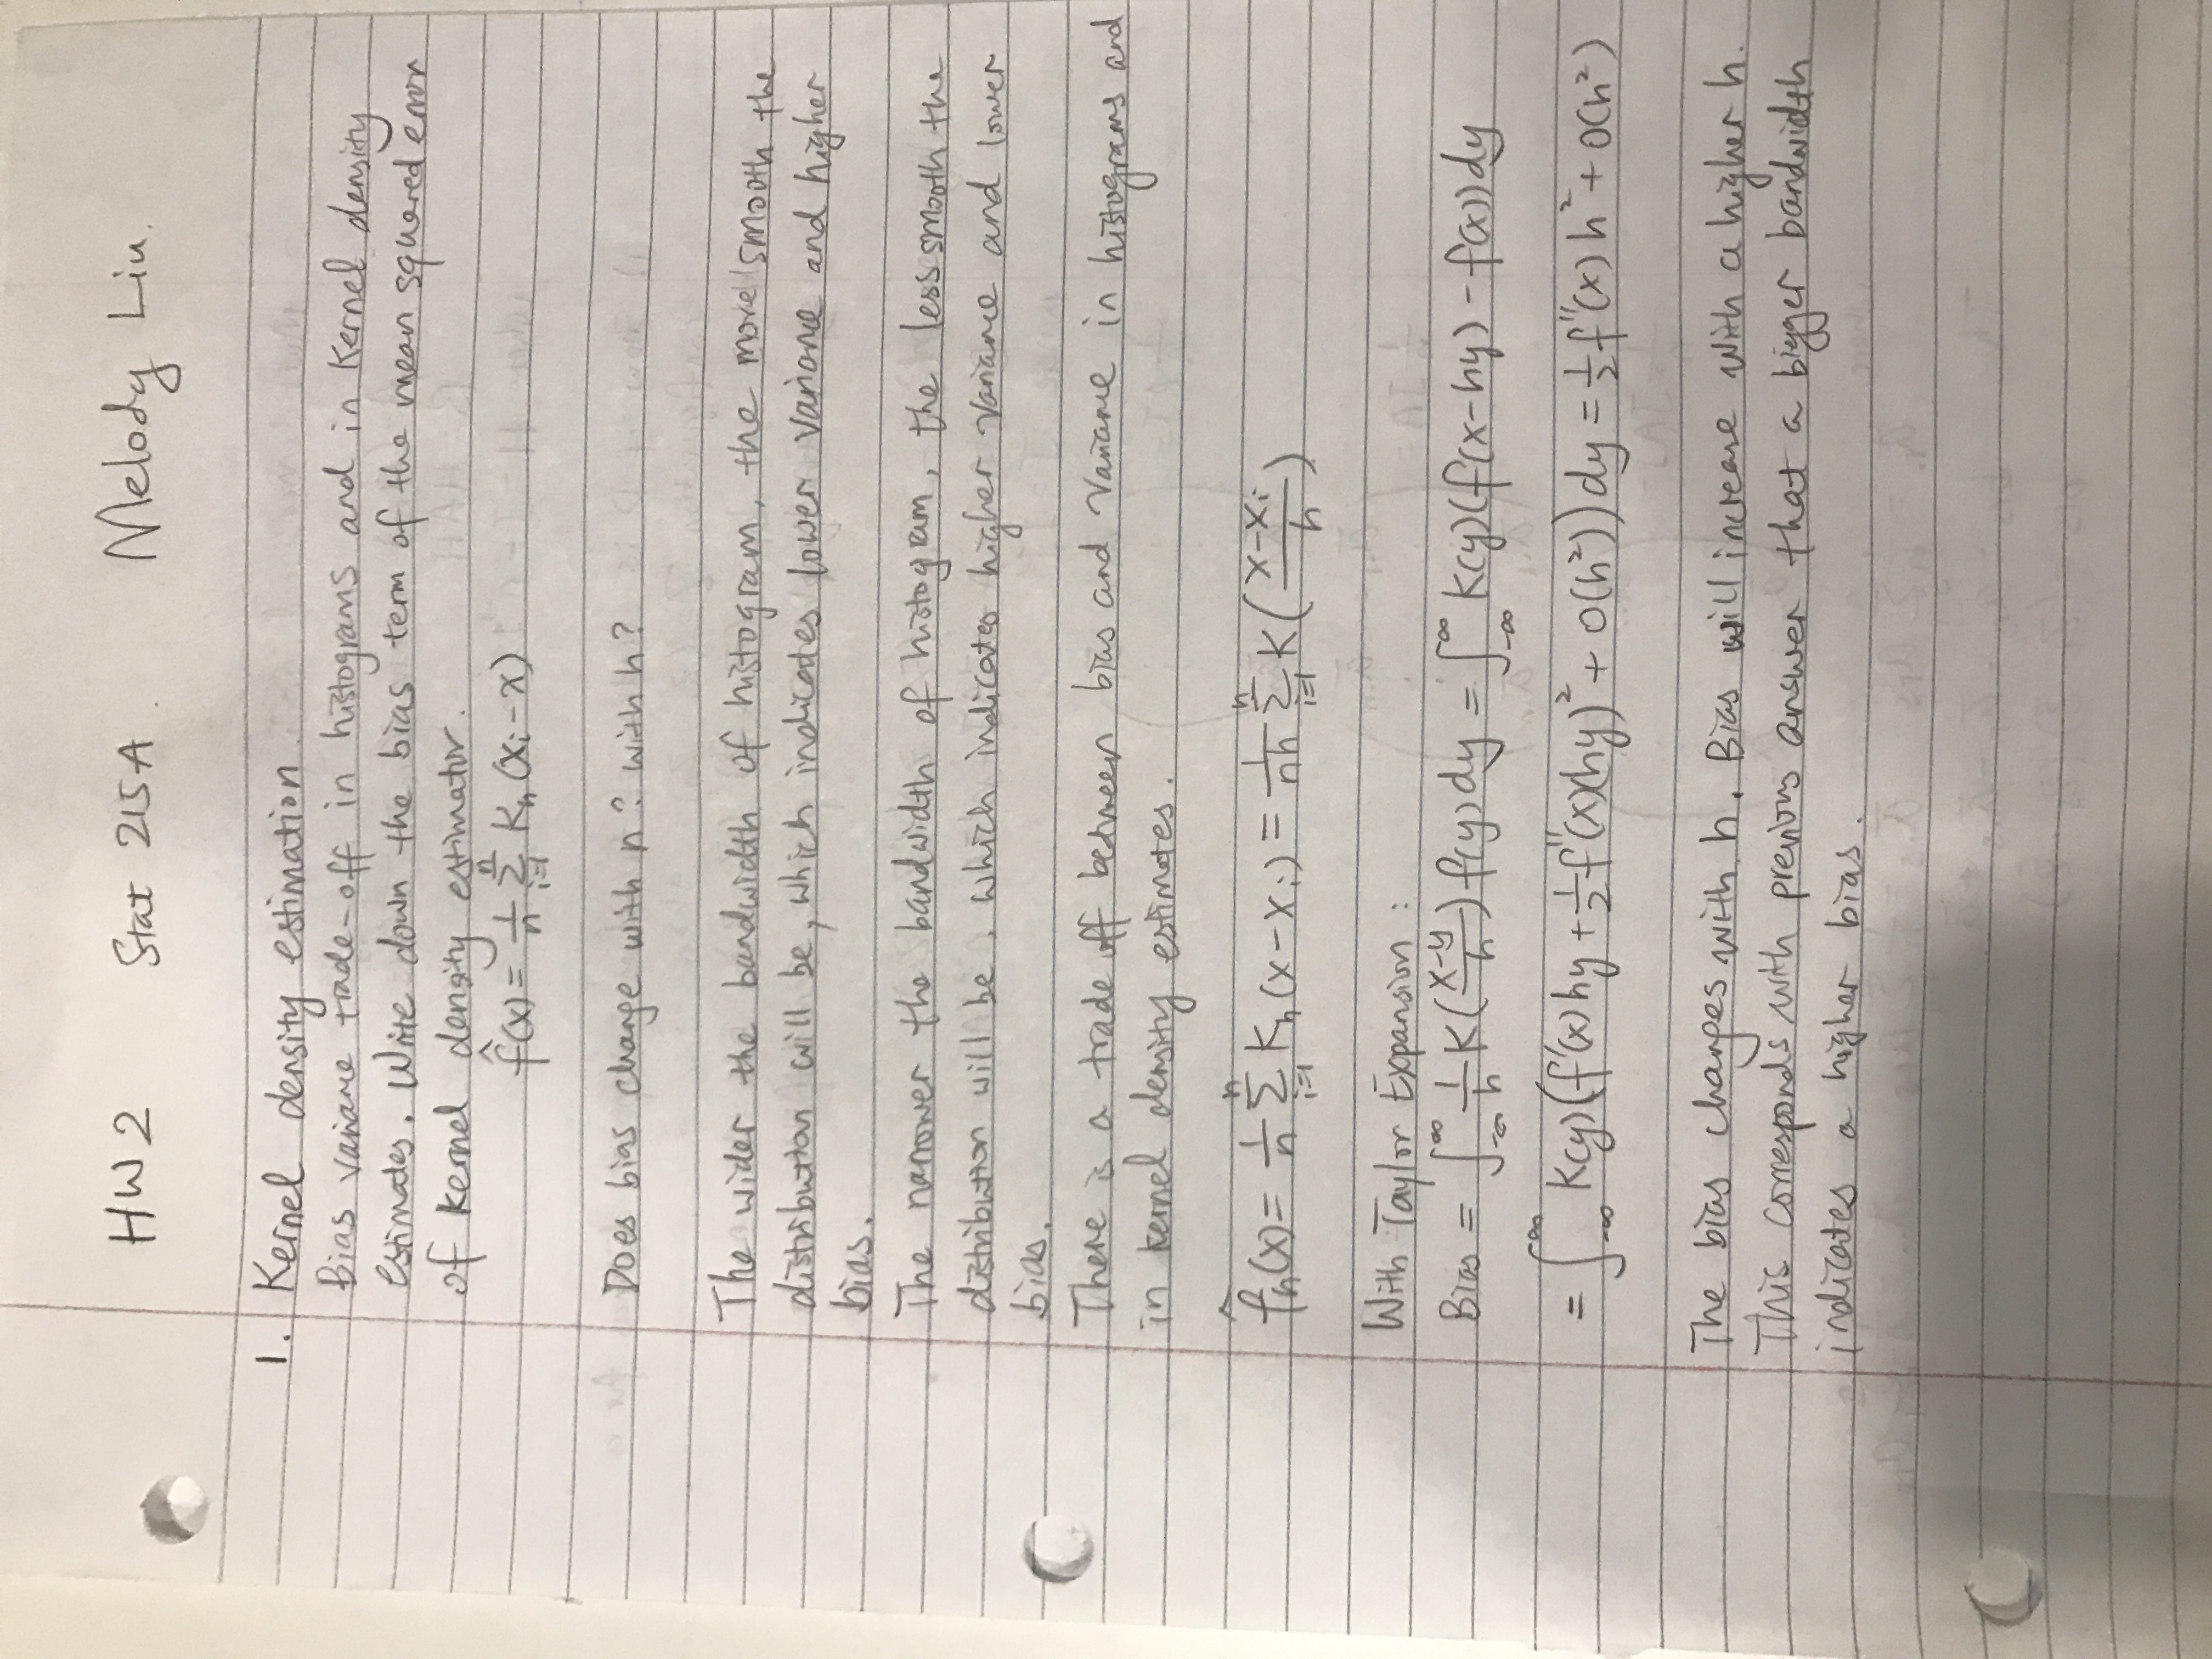 HW2 Stat 215A. Melody Liu.
1. Kernel density estimation.
Bias variance trade-off in histograms and in Kernel density
estimates. Write down the bias term of the mean squared error
of kernel density estimator.
f̂(x) = 1/n Σ_{i=1}^{n} K_h (x_i - x)
Does bias change with n? with h?
The wider the bandwidth of histogram, the more smooth the
distribution will be, which indicates lower variance and higher
bias.
The narrower the bandwidth of histogram, the less smooth the
distribution will be, which indicates higher variance and lower
bias.
There is a trade off between bias and variance in histograms and
in kernel density estimates.
f̂_h(x) = 1/n Σ_{i=1}^{n} K_h (x-x_i) = 1/nh Σ_{i=1}^{n} K((x-x_i)/h)
With Taylor Expansion :
Bias = ∫_{-∞}^{∞} 1/h K((x-y)/h) f(y)dy = ∫_{-∞}^{∞} K(y)(f(x-hy) - f(x))dy
= ∫_{-∞}^{∞} K(y)(f'(x)hy + 1/2 f''(x)(hy)² + O(h²))dy = 1/2 f''(x)h² + O(h²)
The bias changes with h. Bias will increase with a higher h.
This corresponds with previous answer that a bigger bandwidth
indicates a higher bias.